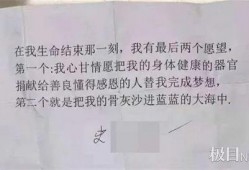 在我生命结束那一刻，我有最后两个愿望，
第一个:我心甘情愿把我的身体健康的器官
捐献给善良懂得感恩的人替我完成梦想，
第二个就是把我的骨灰沙进蓝蓝的大海中.
史
极目